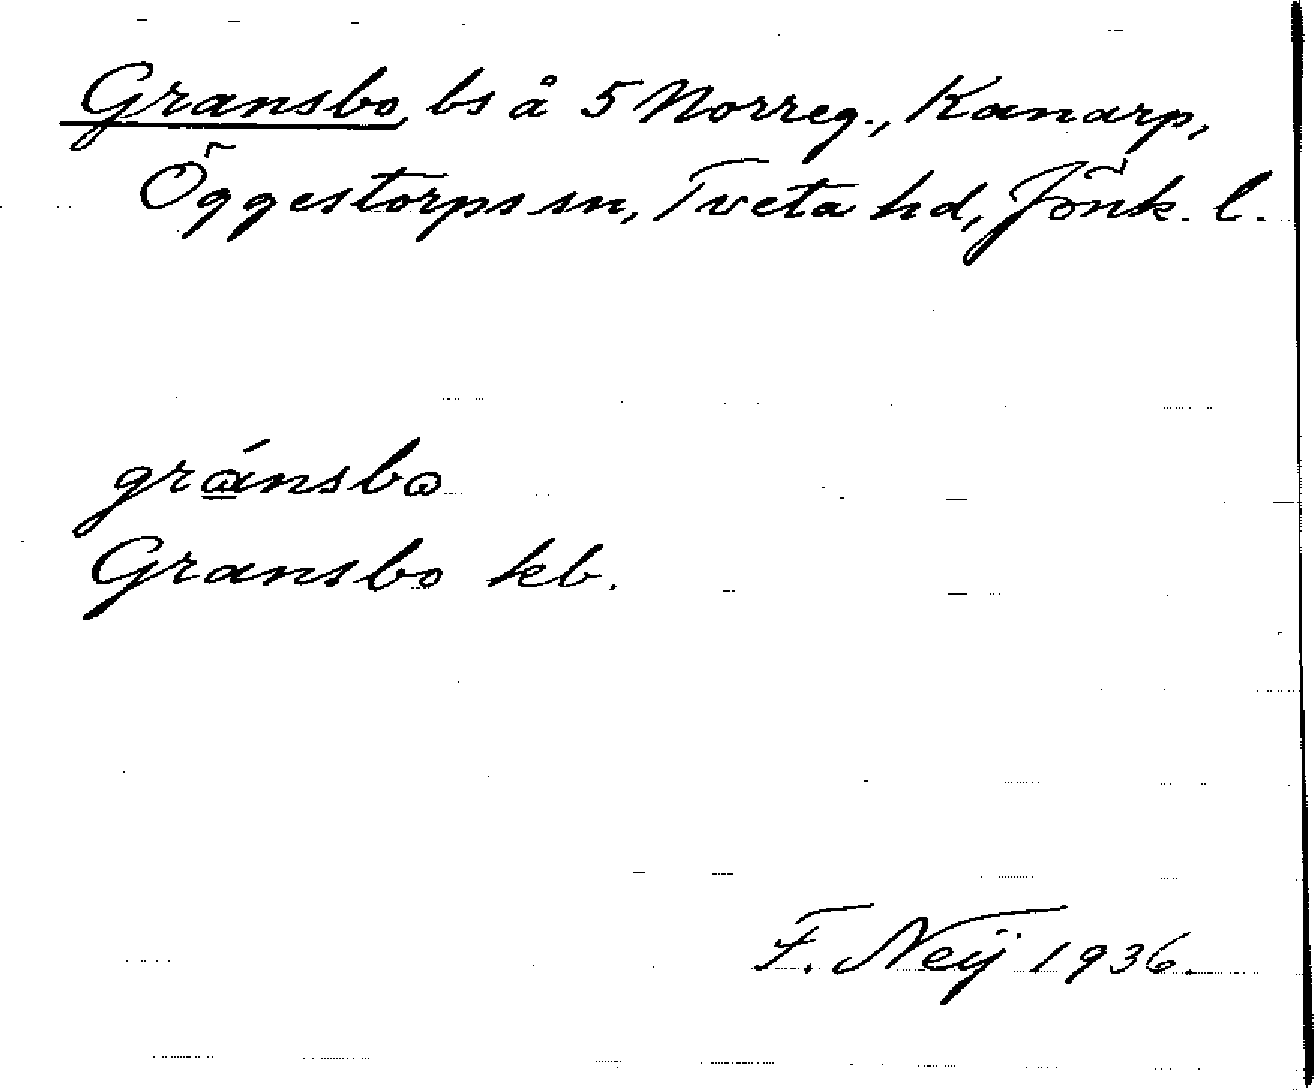 Gransbo, bs å 5 Norreg., Kanarp,
Öggestorps sn, Tveta hd, Jönk. l.
gránsbɷ
Gransbo kb.
F. Neij 1936.